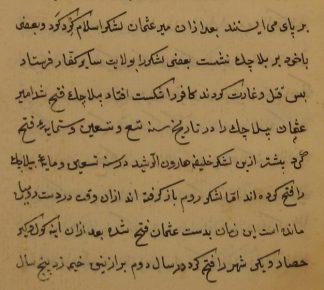 بر پای می ایستند بعد از آن میر عثمان لشکر اسلام کرد کرد و بعضی
با خود بر بلاچك نشست بعضی لشکر را بولایت سایر کفار فرستاد
بس قتل و غارت کردند کافر را شکست افتاد بیلاچك فتح شد امیر
عثمان بیلاچك را در تاریخ سنه تسع و تسعین و ستمایه فتح
کرد بیشتر از این لشکر خلیفه هارون الرشید در سنه تسعین و مایه بیلاچك
را فتح کرده اند اما لشکر روم باز کرفته اند از ان وقت در دست
مانده است این زمان بدست عثمان فتح شده بعد از ان اینه کول و یکی
حصار دیکی شهر را فتح کرد در سال دوم بر ازنیق خیمه زد پنج سال